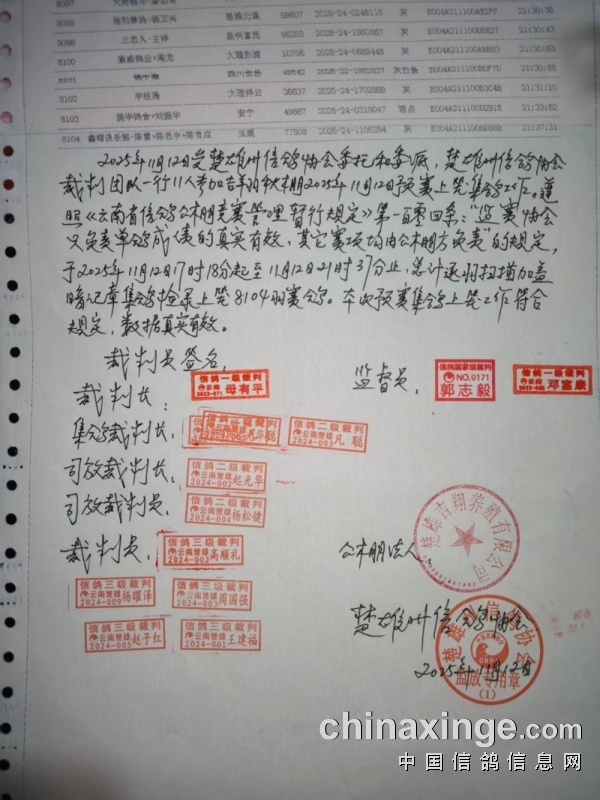 8098 楚雄元谋 59607 2025-24-0248110 灰 E004A211100AE2FF 21:30:38
8099 三忠久-王锋 张明富民 95263 2025-24-1880887 灰 21:30:43
8100 大理弥渡 10706 2025-24-0689448 灰 21:30:53
8101 四川安岳 49542 灰白条 21:30:56
8102 李枝涛 大理祥云 36637 2025-24-1702840 灰 21:31:10
8103 振华鸽舍+刘振华 安宁 49667 2025-24-0318047 雨点 21:33:52
8104 鑫耀俱乐部-陈雷+陈思宇+陈育应 玉溪 77508 2025-24-1106254 灰 21:37:31
2025年11月12日受楚雄州信鸽协会委托和委派,楚雄州信鸽协会
裁判团队一行11人参加吉羽的公棚2025年11月12日预赛上笼集鸽工作。遵
照《云南省信鸽公棚竞赛管理暂行规定》第一百零四条:“监赛协会
只负责单鸽成绩的真实有效,其它赛项均由公棚方负责”的规定,
于2025年11月12日17时18分起至11月12日21时37分止,总计逐羽扫描加盖
暗记章集鸽验棚上笼8104羽赛鸽。本次预赛集鸽上笼工作符合
规定,数据真实有效。
裁判员签名,
裁判长: 信鸽一级裁判 云南 2023-071 母有平
监督员, 信鸽国家级裁判 NO.0171 郭志毅 信鸽一级裁判 云南 邓富康
集鸽裁判长, 信鸽二级裁判 云南楚雄 信鸽二级裁判 云南楚雄 2024-003 凡聪
司放裁判长, 信鸽二级裁判 云南楚雄 2024-002 起光华
司放裁判员, 信鸽二级裁判 云南楚雄 2024-004 杨松健
裁判员, 信鸽三级裁判 云南楚雄 2024-002 高顺礼
信鸽三级裁判 云南楚雄 2024-009 杨曜泽 信鸽三级裁判 云南楚雄 2024-003 周国强
信鸽三级裁判 云南楚雄 2024-005 赵子红 信鸽三级裁判 云南楚雄 2024-001 王建福
公棚法人:
楚雄吉翔养殖有限公司
楚雄州信鸽协会
2025年11月12日
楚雄州信鸽协会
监放专用章
(1)
chinaxinge.com
中国信鸽信息网